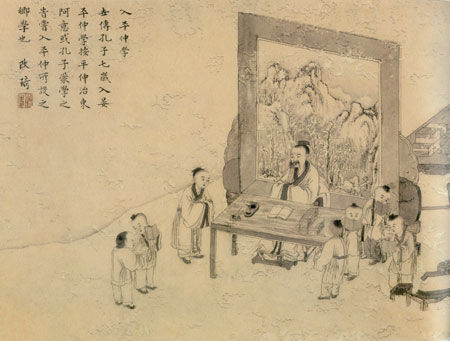 入平仲學
世傳孔子七歲入晏
平仲學按平仲治東
阿意或孔子蒙學之
旹嘗入平仲所設之
鄉學也 改琦